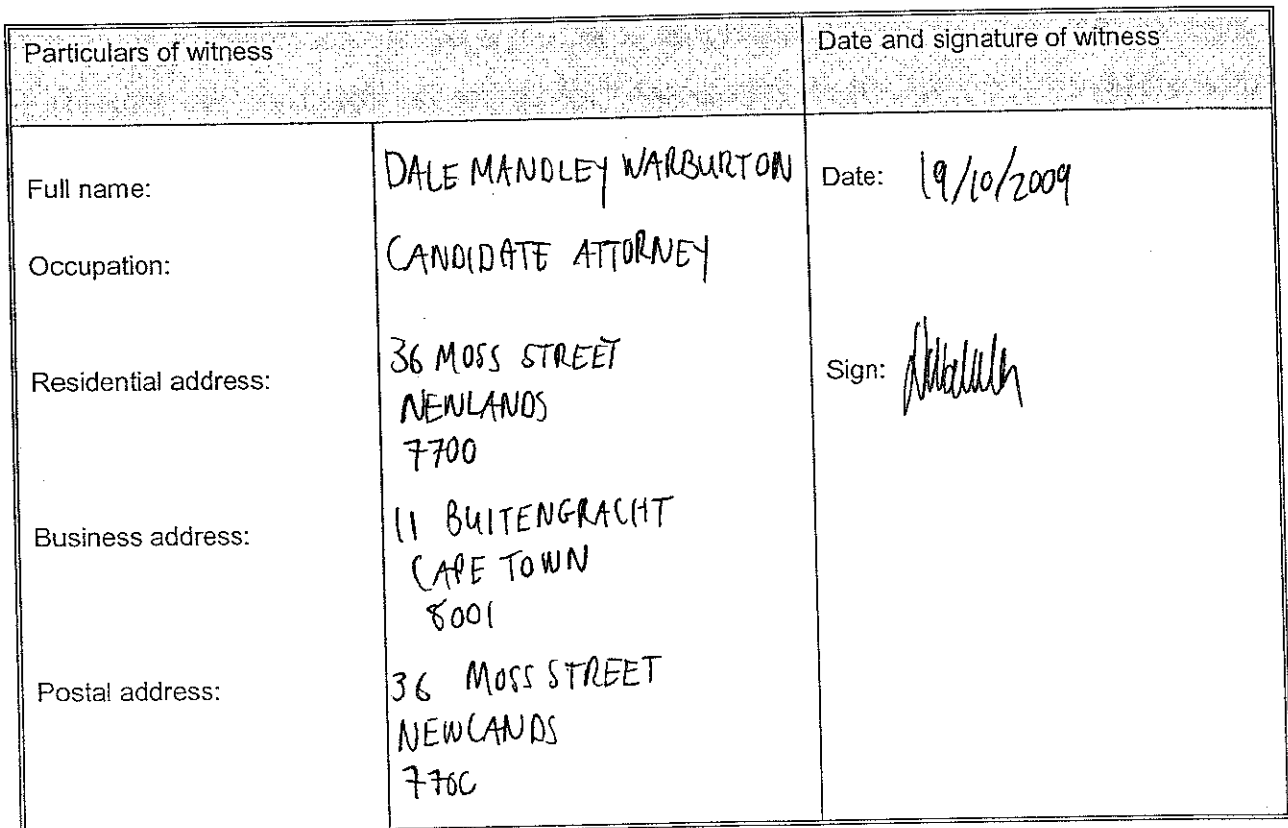 Particulars of witness
Date and signature of witness
Full name:
DALE MANDLEY WARBURTON
Date: 19/10/2009
Occupation:
CANDIDATE ATTORNEY
Residential address:
36 MOSS STREET
NEWLANDS
7700
Sign:
Business address:
11 BUITENGRACHT
CAPE TOWN
8001
Postal address:
36 MOSS STREET
NEWLANDS
7700